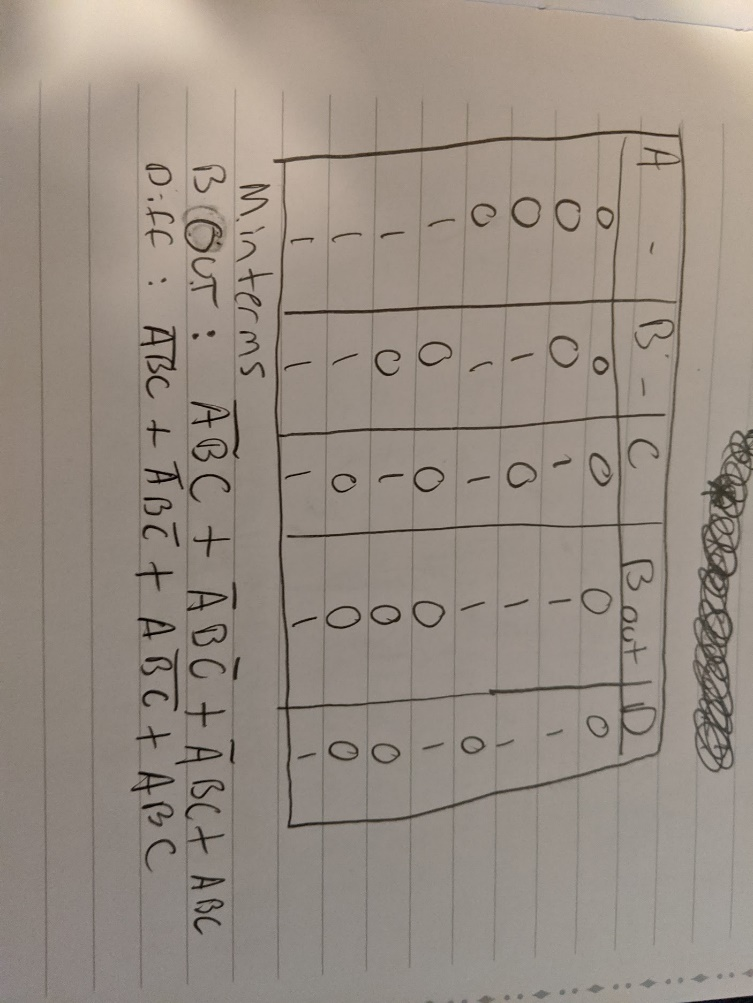 A - B - C Bout D
0 0 0 0 0
0 0 1 1 1
0 1 0 1 1
0 1 1 1 0
1 0 0 0 1
1 0 1 0 0
1 1 0 0 0
1 1 1 1 1
Minterms
BOUT : A̅B̅C + A̅BC̅ + A̅BC + ABC
Diff : A̅B̅C + A̅BC̅ + AB̅C̅ + ABC